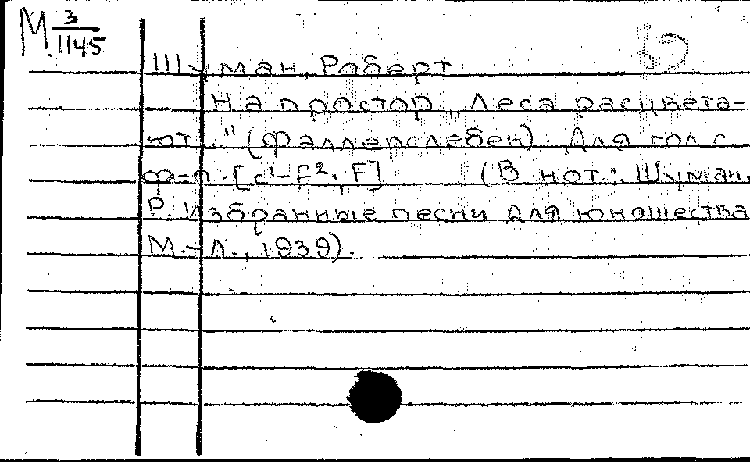 М 3/1145
Шуман, Роберт
На простор „Леса расцвета-
ют..." (Фаллерслебен). Для гол. с
ф-п. [c¹-F², F] (В нот.: Шуман,
Р. Избранные песни для юношества
М.-Л., 1939).